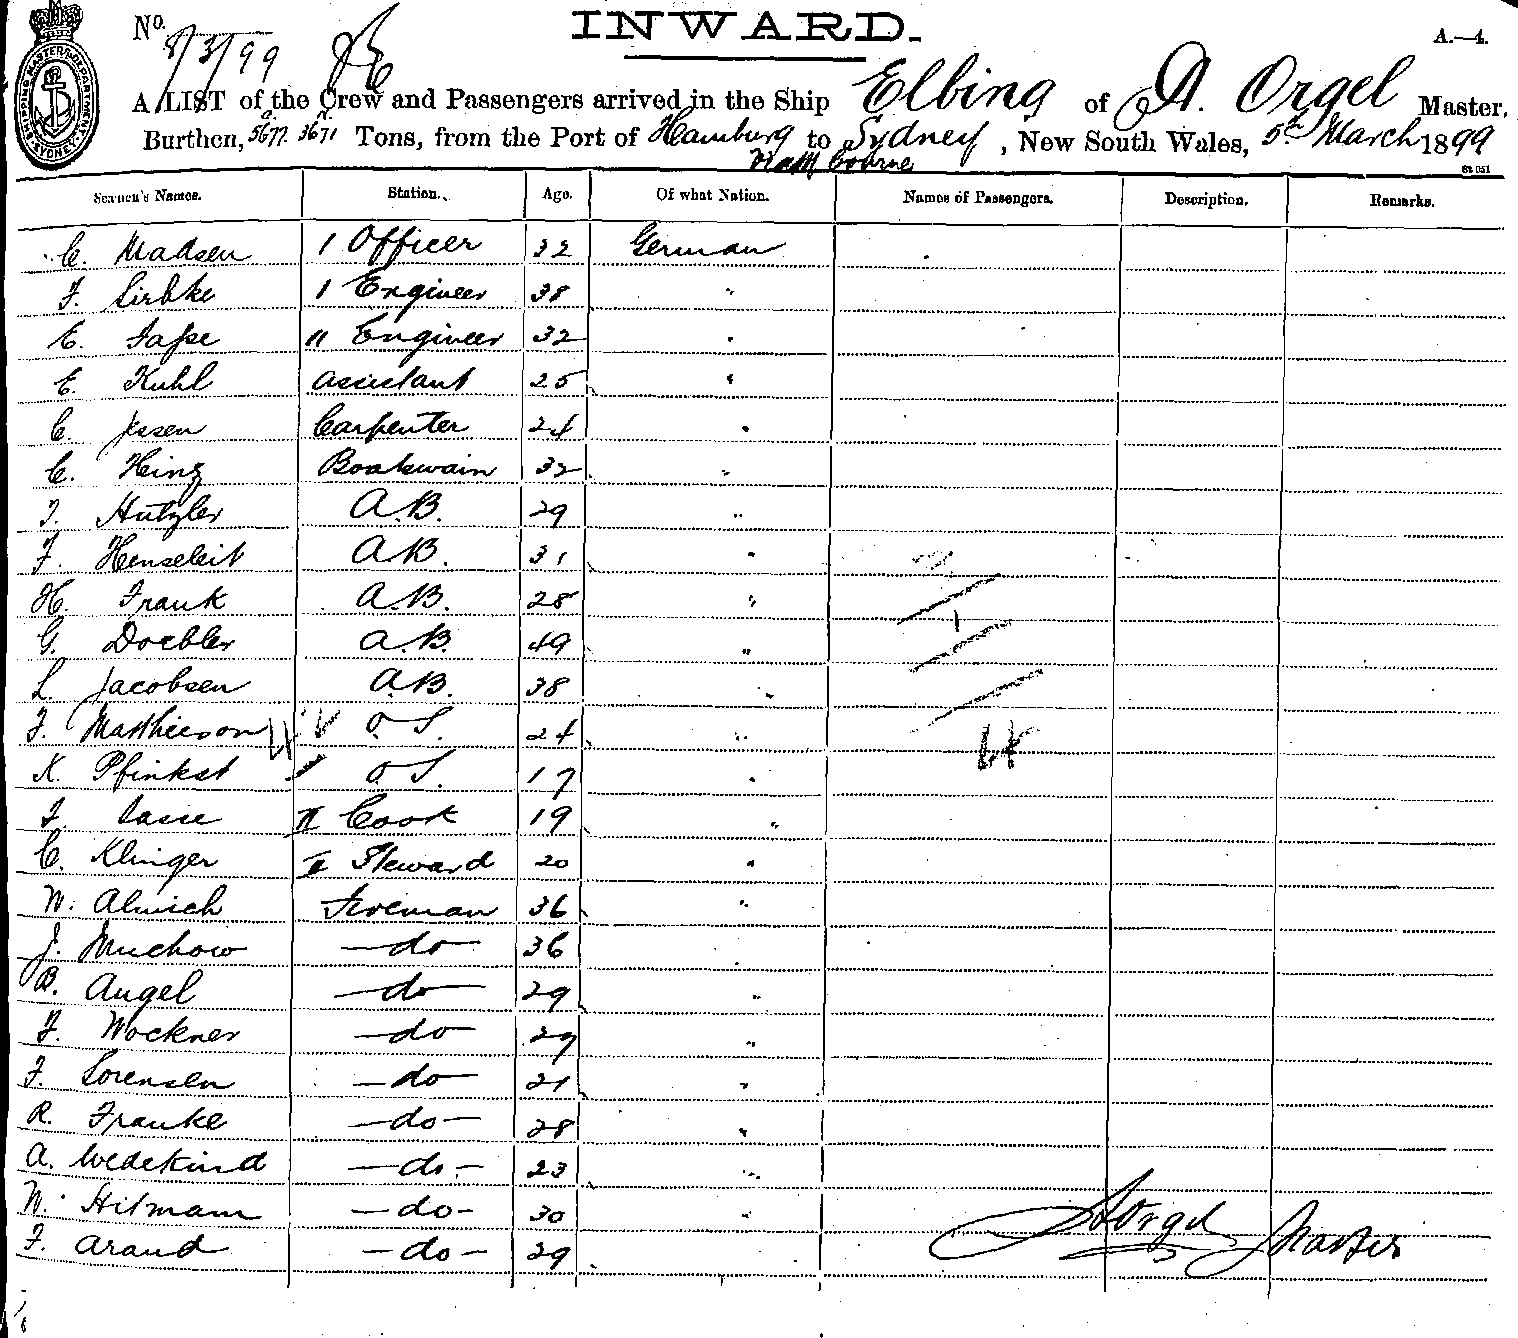 INWARD.
No.
8/3/99
A.—4.
A LIST of the Crew and Passengers arrived in the Ship Elbing of A. Orgel Master,
Burthen, 5677. 3671 Tons, from the Port of Hamburg to Sydney, New South Wales, 5th March 1899
SHIPPING MASTER'S DEPARTMENT SYDNEY
Seamen's Names. Station. Age. Of what Nation. Names of Passengers. Description. Remarks.
C. Madsen 1 Officer 32 German
F. 1 Engineer 38 "
E. II Engineer 32 "
E. Kuhl Assistant 25 "
C. Jessen Carpenter 24 "
C. Hinz Boatswain 32 "
J. Hutzler A.B. 29 "
F. Henseleit A.B. 31 "
H. Frank A.B. 28 "
G. Doebler A.B. 49 "
L. Jacobsen A.B. 38 "
F. Matthieson O.S. 24 "
K. Pfinkst O.S. 17 "
II Cook 19 "
C. Klinger II Steward 20 "
W. Fireman 36 "
J. Muchow —do— 36 "
B. Angel —do— 29 "
F. Wockner —do— 29 "
F. Sorensen —do— 21 "
R. Franke —do— 28 "
A. Wedekind —do— 23 "
W. —do— 30 "
F. Arand —do— 29
A Orgel Master